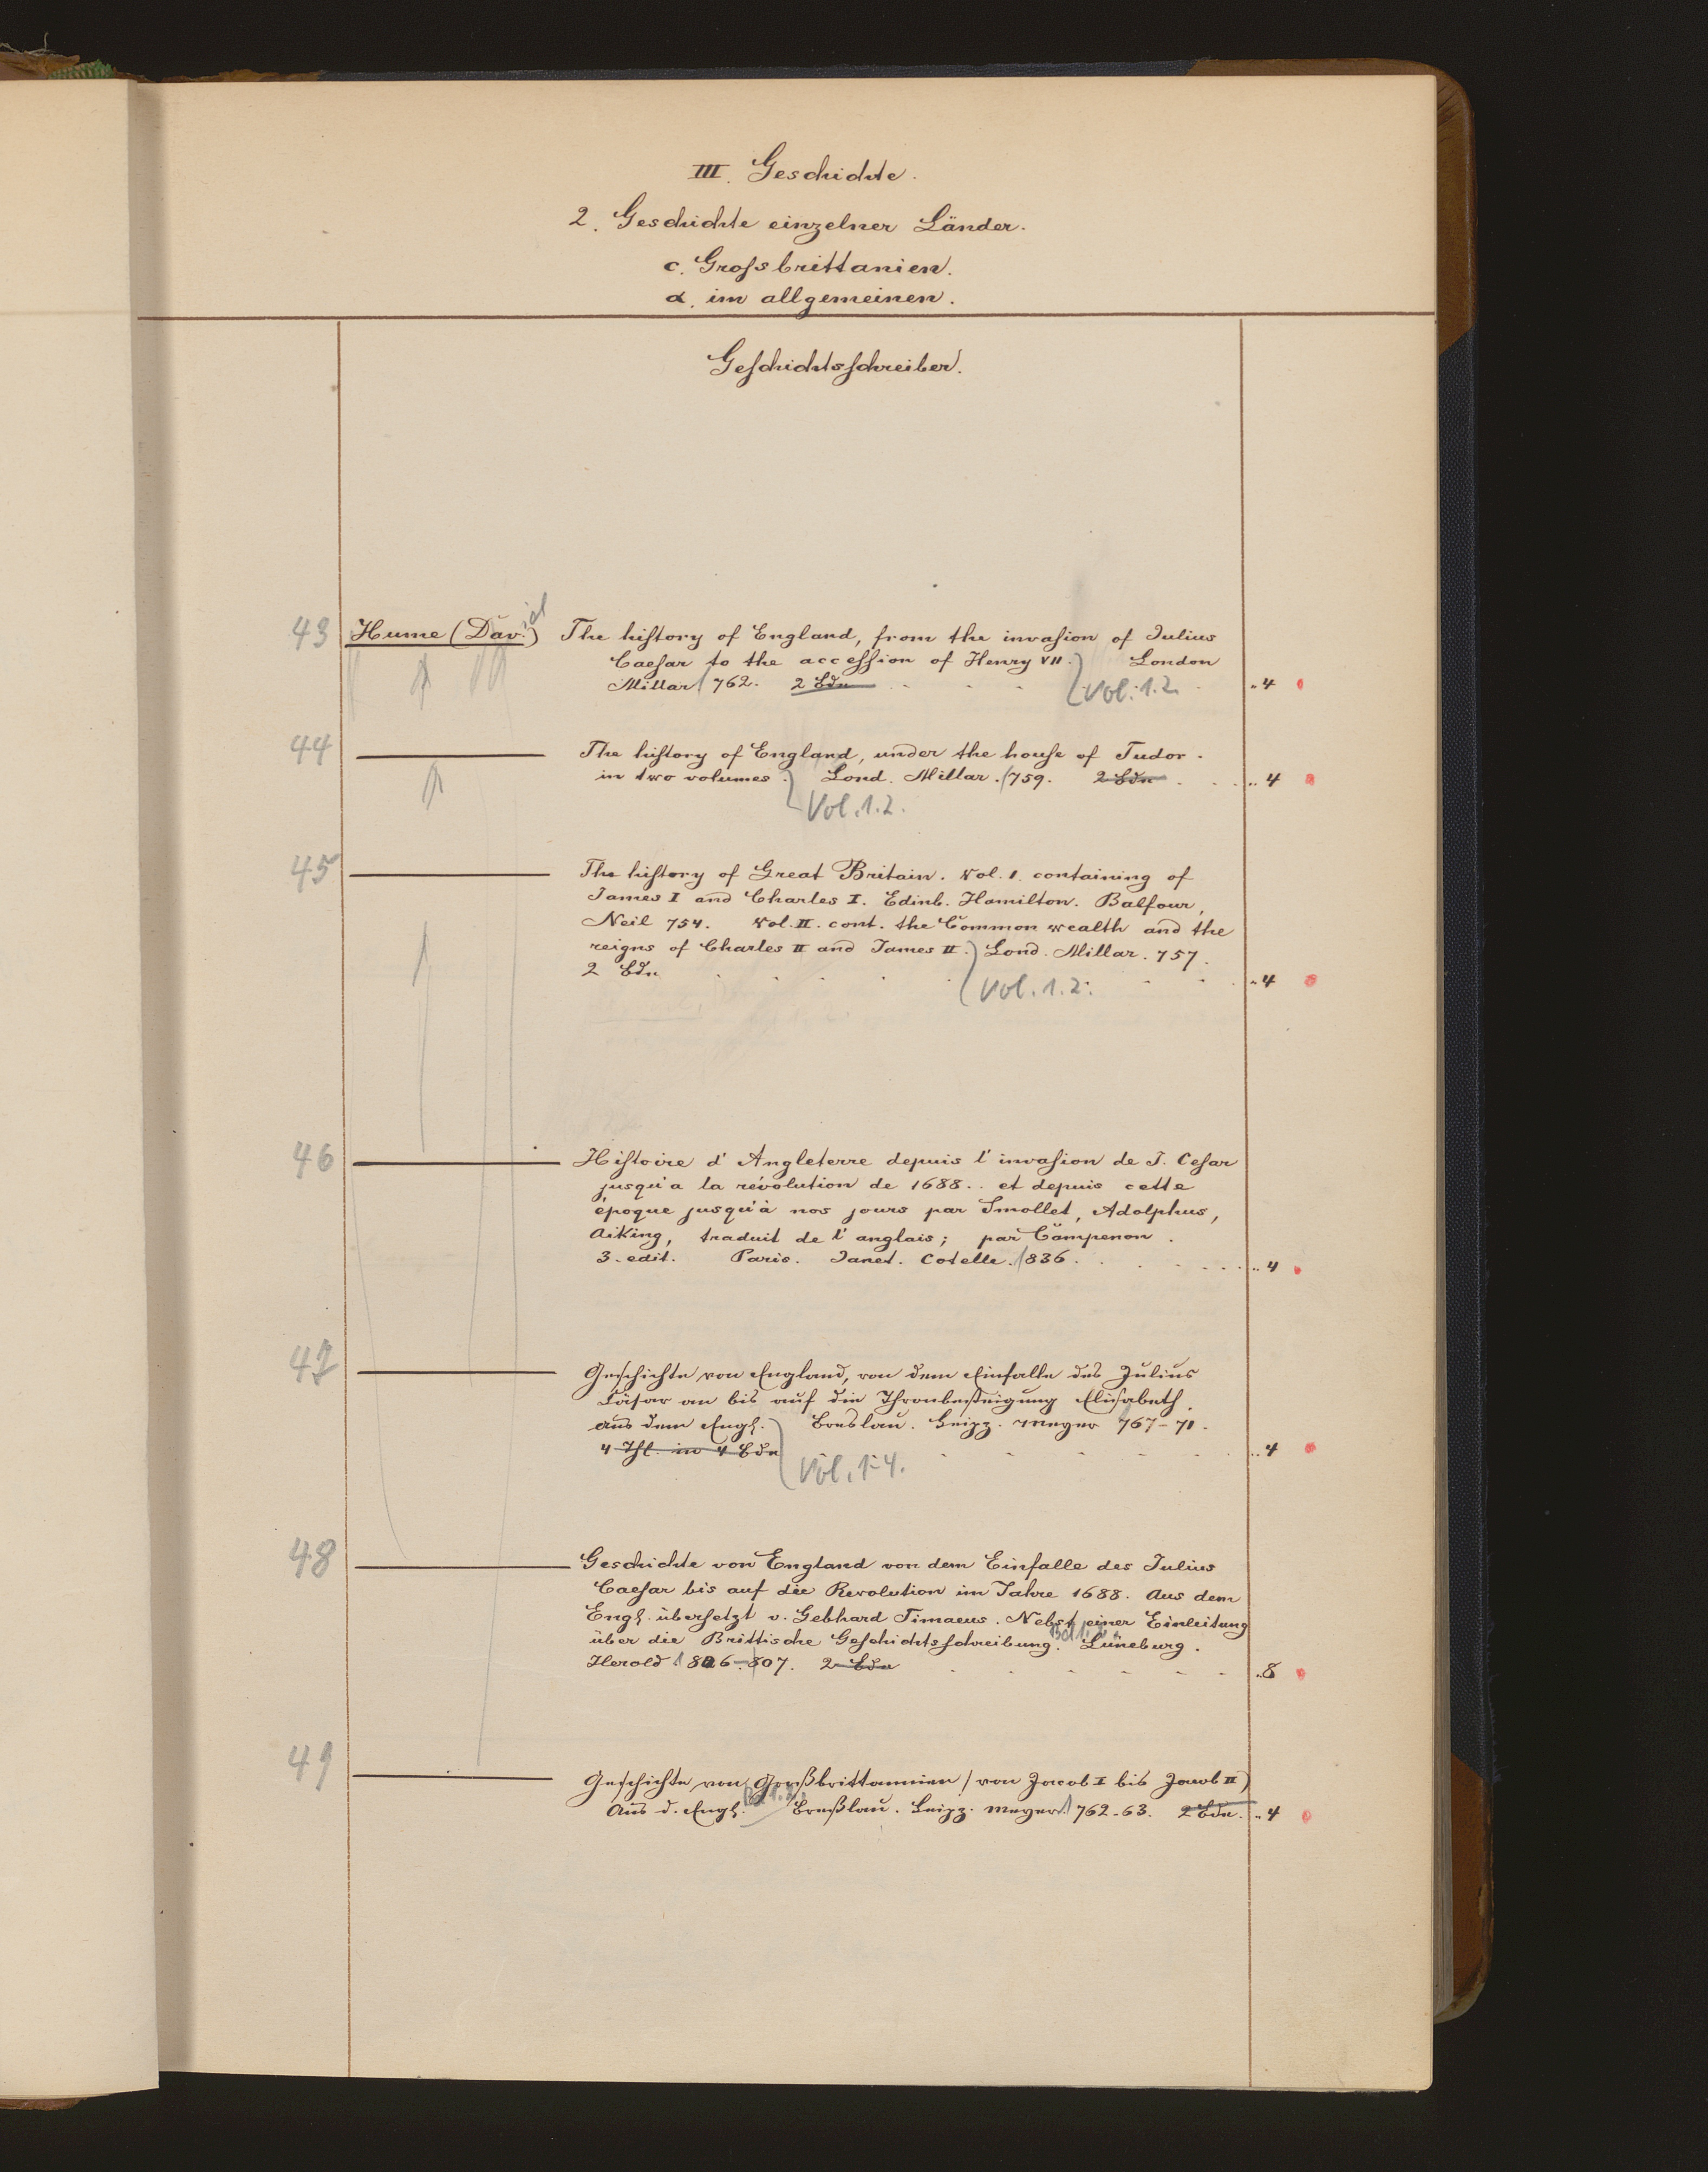 III. Geschichte.
2. Geschichte einzelner Länder.
c. Grossbrittanien.
α. im allgemeinen.
Geschichtsschreiber.
43 Hume (David) The history of England, from the invasion of Julius
Caesar to the accession of Henry VII. London
Millar 1762. 2 Bde Vol. 1.2. "4
44 The history of England, under the house of Tudor.
in two volumes. Lond. Millar. 1759. 2 Bde "4
Vol. 1.2.
45 The history of Great Britain. Vol. 1. containing of
James I and Charles I. Edinb. Hamilton. Balfour,
Neil 754. Vol. II. cont. the Common wealth and the
reigns of Charles II and James II. Lond. Millar. 757.
2 Bde Vol. 1.2. "4
46 Histoire d'Angleterre depuis l'invasion de J. Cesar
jusqu'a la révolution de 1688.. et depuis cette
époque jusqu'à nos jours par Smollet, Adolphus,
Aiking, traduit de l'anglais; par Campenon.
3. edit. Paris. Janet. Cotelle. 1836. "4
47 Geschichte von England, von dem Einfalle des Julius
Cäsar an bis auf die Thronbesteigung Elisabeth.
Aus dem Engl. Breslau. Leipz. Meyer 767-71.
4 Thl. in 4 Bde Vol. 1-4. "4
48 Geschichte von England von dem Einfalle des Julius
Caesar bis auf die Revolution im Jahre 1688. Aus dem
Engl. übersetzt v. Gebhard Timaeus. Nebst einer Einleitung
über die Brittische Geschichtsschreibung. Bd 1.2. Lüneburg.
Herold 1806-807. 2 Bde "8
49 Geschichte von Großbrittannien (von Jacob I bis Jacob II)
Aus d. Engl. Breßlau. Leipz. Meyer. 1762-63. 2 Bde. "4